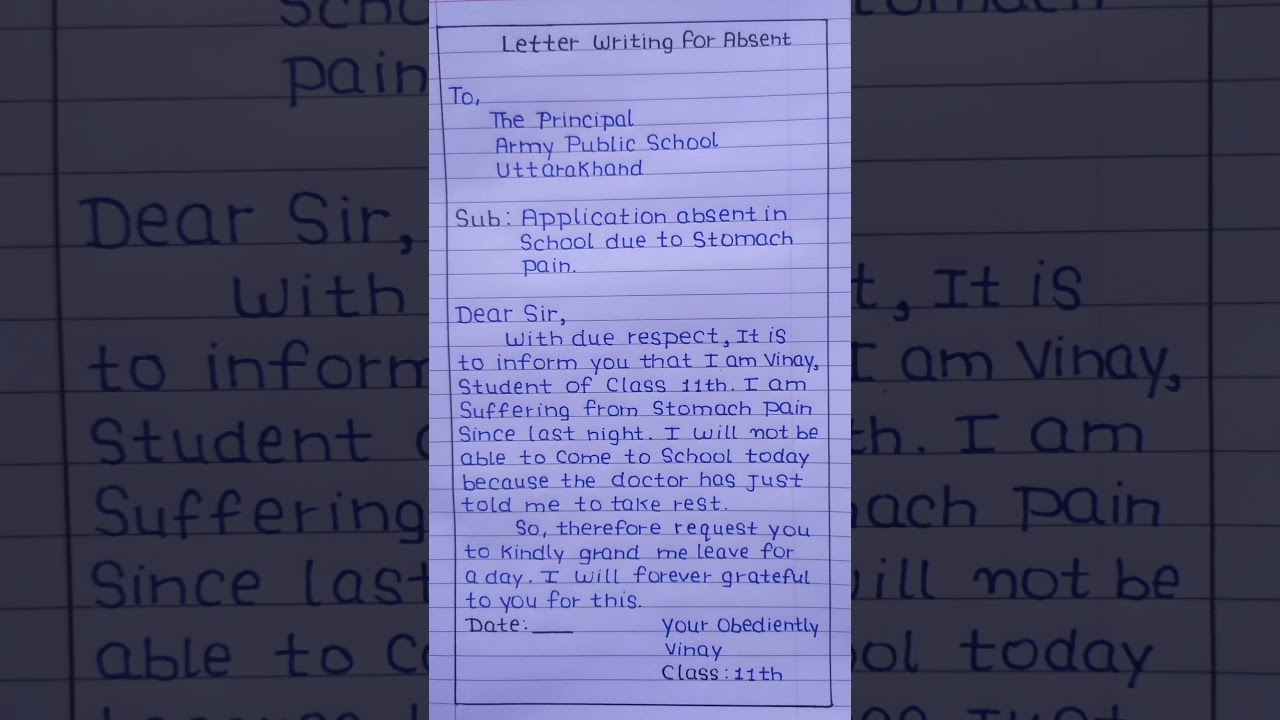 Letter Writing for Absent
To,
The Principal
Army Public School
Uttarakhand
Sub: Application absent in
School due to Stomach
pain.
Dear Sir,
With due respect, It is
to inform you that I am Vinay,
Student of Class 11th. I am
Suffering from Stomach pain
Since last night. I will not be
able to come to School today
because the doctor has just
told me to take rest.
So, therefore request you
to kindly grand me leave for
a day. I will forever grateful
to you for this.
Date: ___
Your Obediently
Vinay
Class: 11th
pain
Dear Sir,
With
to inform
Student
Suffering
Since last
able to
t, It is
I am Vinay,
th. I am
ach pain
ill not be
ol today